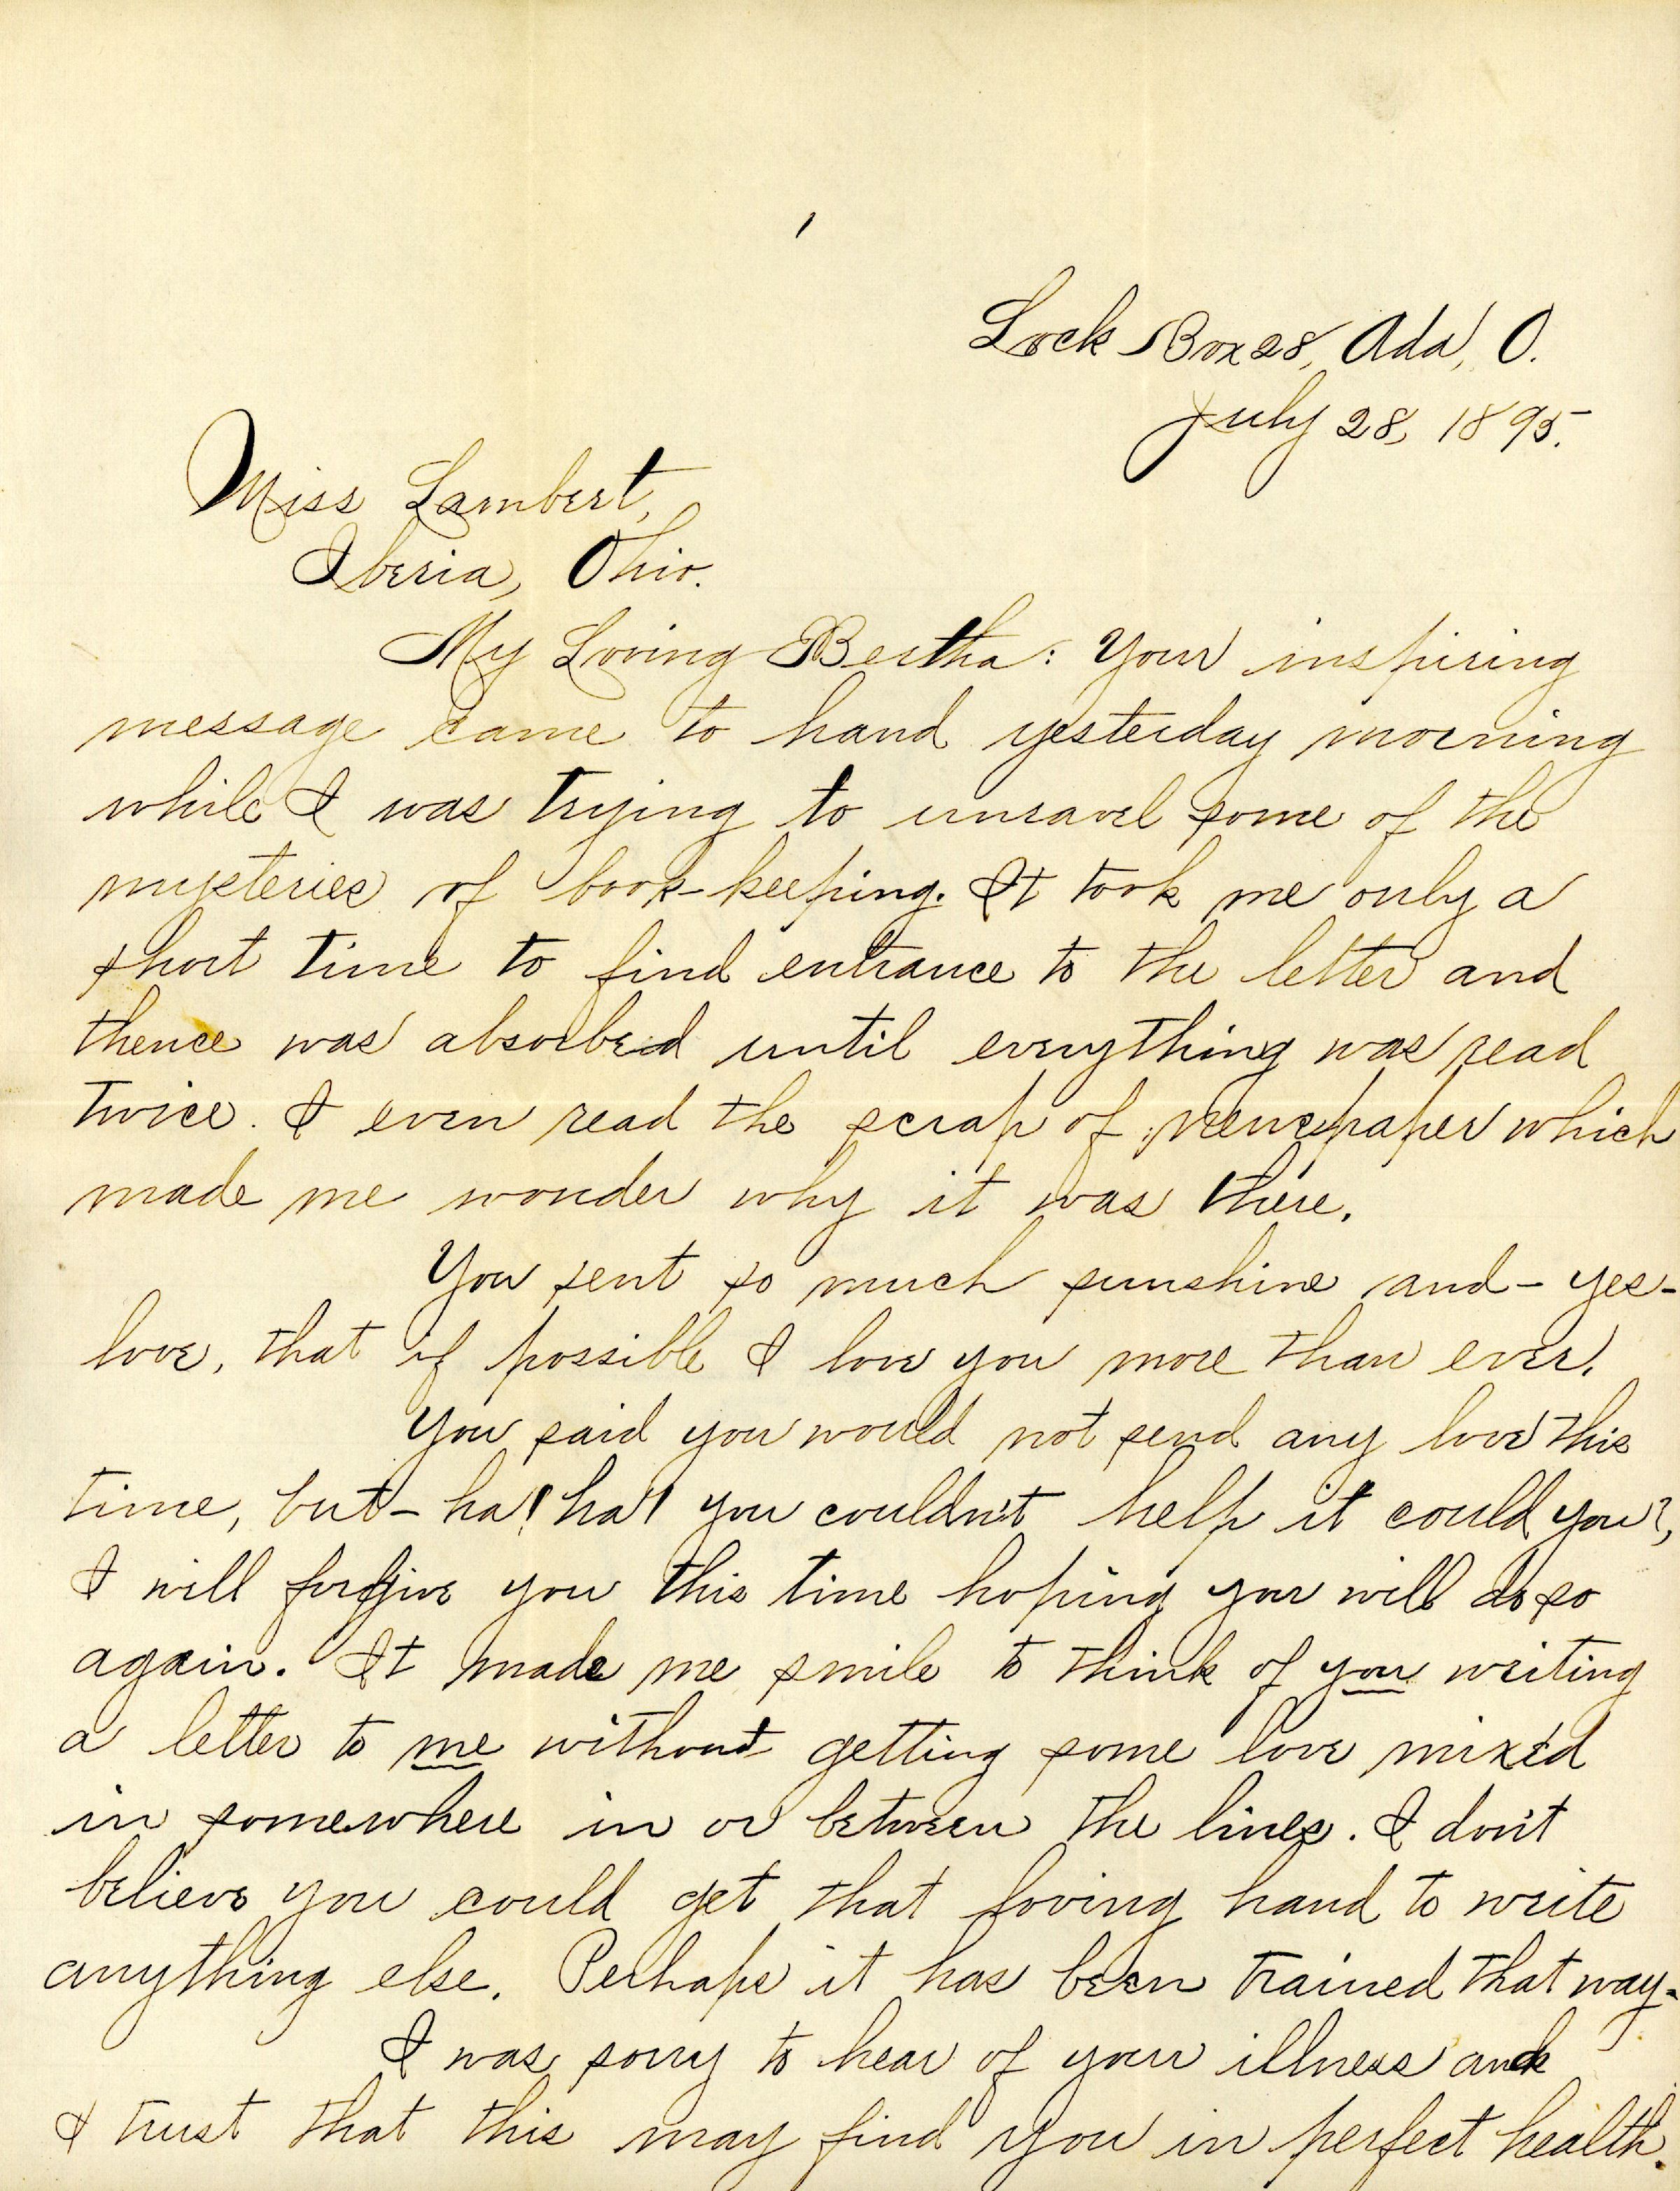 1
Lock Box 28, Ada, O.
July 28, 1895.
Miss Lambert,
Iberia, Ohio.
My Loving Bertha: Your inspiring
message came to hand yesterday morning
while I was trying to unravel some of the
mysteries of book-keeping. It took me only a
short time to find entrance to the letter and
thence was absorbed until everything was read
twice. I even read the scrap of newspaper which
made me wonder why it was there.
You sent so much sunshine and - yes -
love, that if possible I love you more than ever.
You said you would not send any love this
time, but - ha! ha! you couldn't help it could you?,
I will forgive you this time hoping you will do so
again. It made me smile to think of you writing
a letter to me without getting some love mixed
in somewhere in or between the lines. I don't
believe you could get that loving hand to write
anything else. Perhaps it has been trained that way.
I was sorry to hear of your illness and
I trust that this may find you in perfect health.